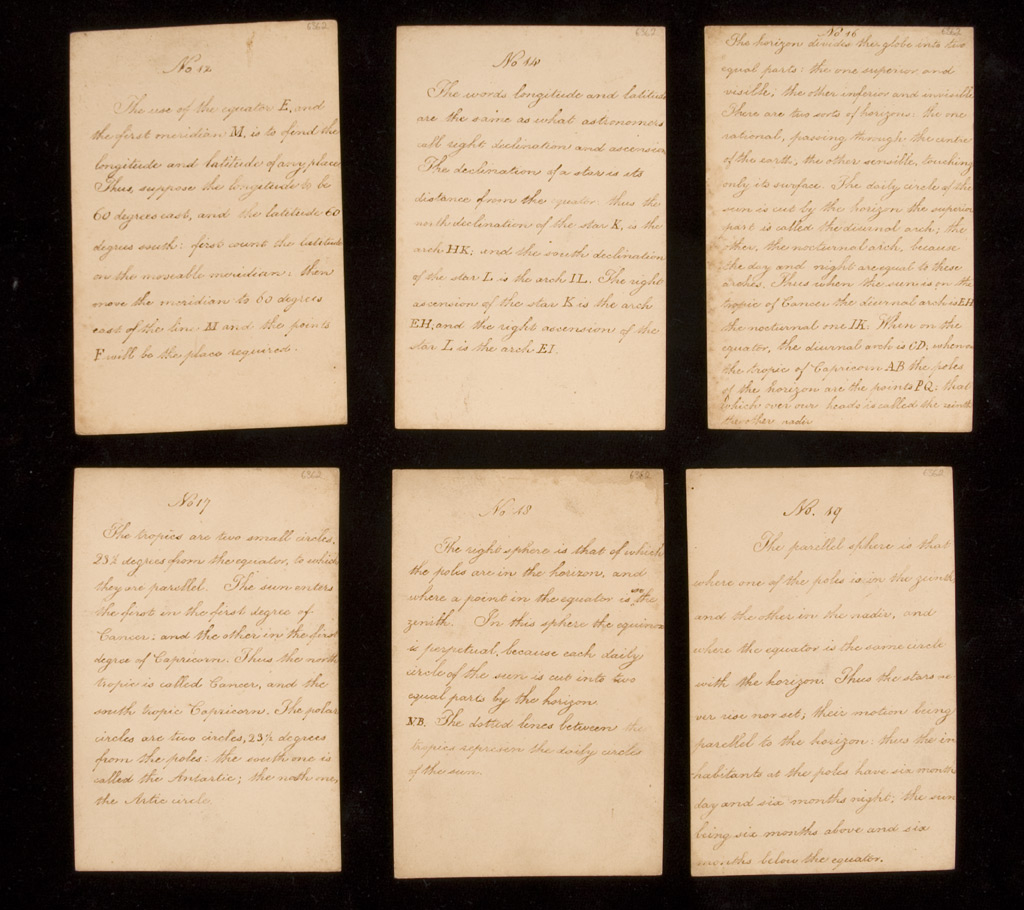 6362
No 12
The use of the equator E, and
the first meridian M, is to find the
longitude and latitude of any place
Thus, suppose the longitude to be
60 degrees east, and the latitude 60
degrees south: first count the latitude
on the moveable meridian: then
move the meridian to 60 degrees
east of the line M and the points
F will be the place required.
6362
No 14
The words longitude and latitude
are the same as what astronomers
call right declination and ascension
The declination of a star is its
distance from the equator thus the
north declination of the star K, is the
arch HK; and the south declination
of the star L is the arch IL. The right
ascension of the star K is the arch
EH; and the right ascension of the
star L is the arch EI.
6362
No 16
The horizon divides the globe into two
equal parts: the one superior and
visible; the other inferior and invisible
There are two sorts of horizons: the one
rational, passing through the centre
of the earth, the other sensible, touching
only its surface. The daily circle of the
sun is cut by the horizon the superior
part is called the diurnal arch; the
other, the nocturnal arch, because
the day and night are equal to these
arches. Thus when the sun is on the
tropic of Cancer the diurnal arch is EH
the nocturnal one IK. When on the
equator, the diurnal arch is CD; when on
the tropic of Capricorn AB the poles
of the horizon are the points PQ: that
which over our heads is called the zenith
the other nadir
6362
No 17
The tropics are two small circles,
23½ degrees from the equator, to which
they are parallel. The sun enters
the first in the first degree of
Cancer: and the other in the first
degree of Capricorn. Thus the north
tropic is called Cancer, and the
south tropic Capricorn. The polar
circles are two circles, 23½ degrees
from the poles: the south one is
called the Antartic; the north one,
the Artic circle.
6362
No 18
The right sphere is that of which
the poles are in the horizon, and
where a point in the equator is in the
zenith. In this sphere the equinox
is perpetual, because each daily
circle of the sun is cut into two
equal parts by the horizon.
NB. The dotted lines between the
tropics represent the daily circles
of the sun.
6362
No. 19
The parallel sphere is that
where one of the poles is in the zenith
and the other in the nadir, and
where the equator is the same circle
with the horizon. Thus the stars ne
ver rise nor set; their motion being
parallel to the horizon: thus the in
habitants at the poles have six months
day and six months night; the sun
being six months above and six
months below the equator.